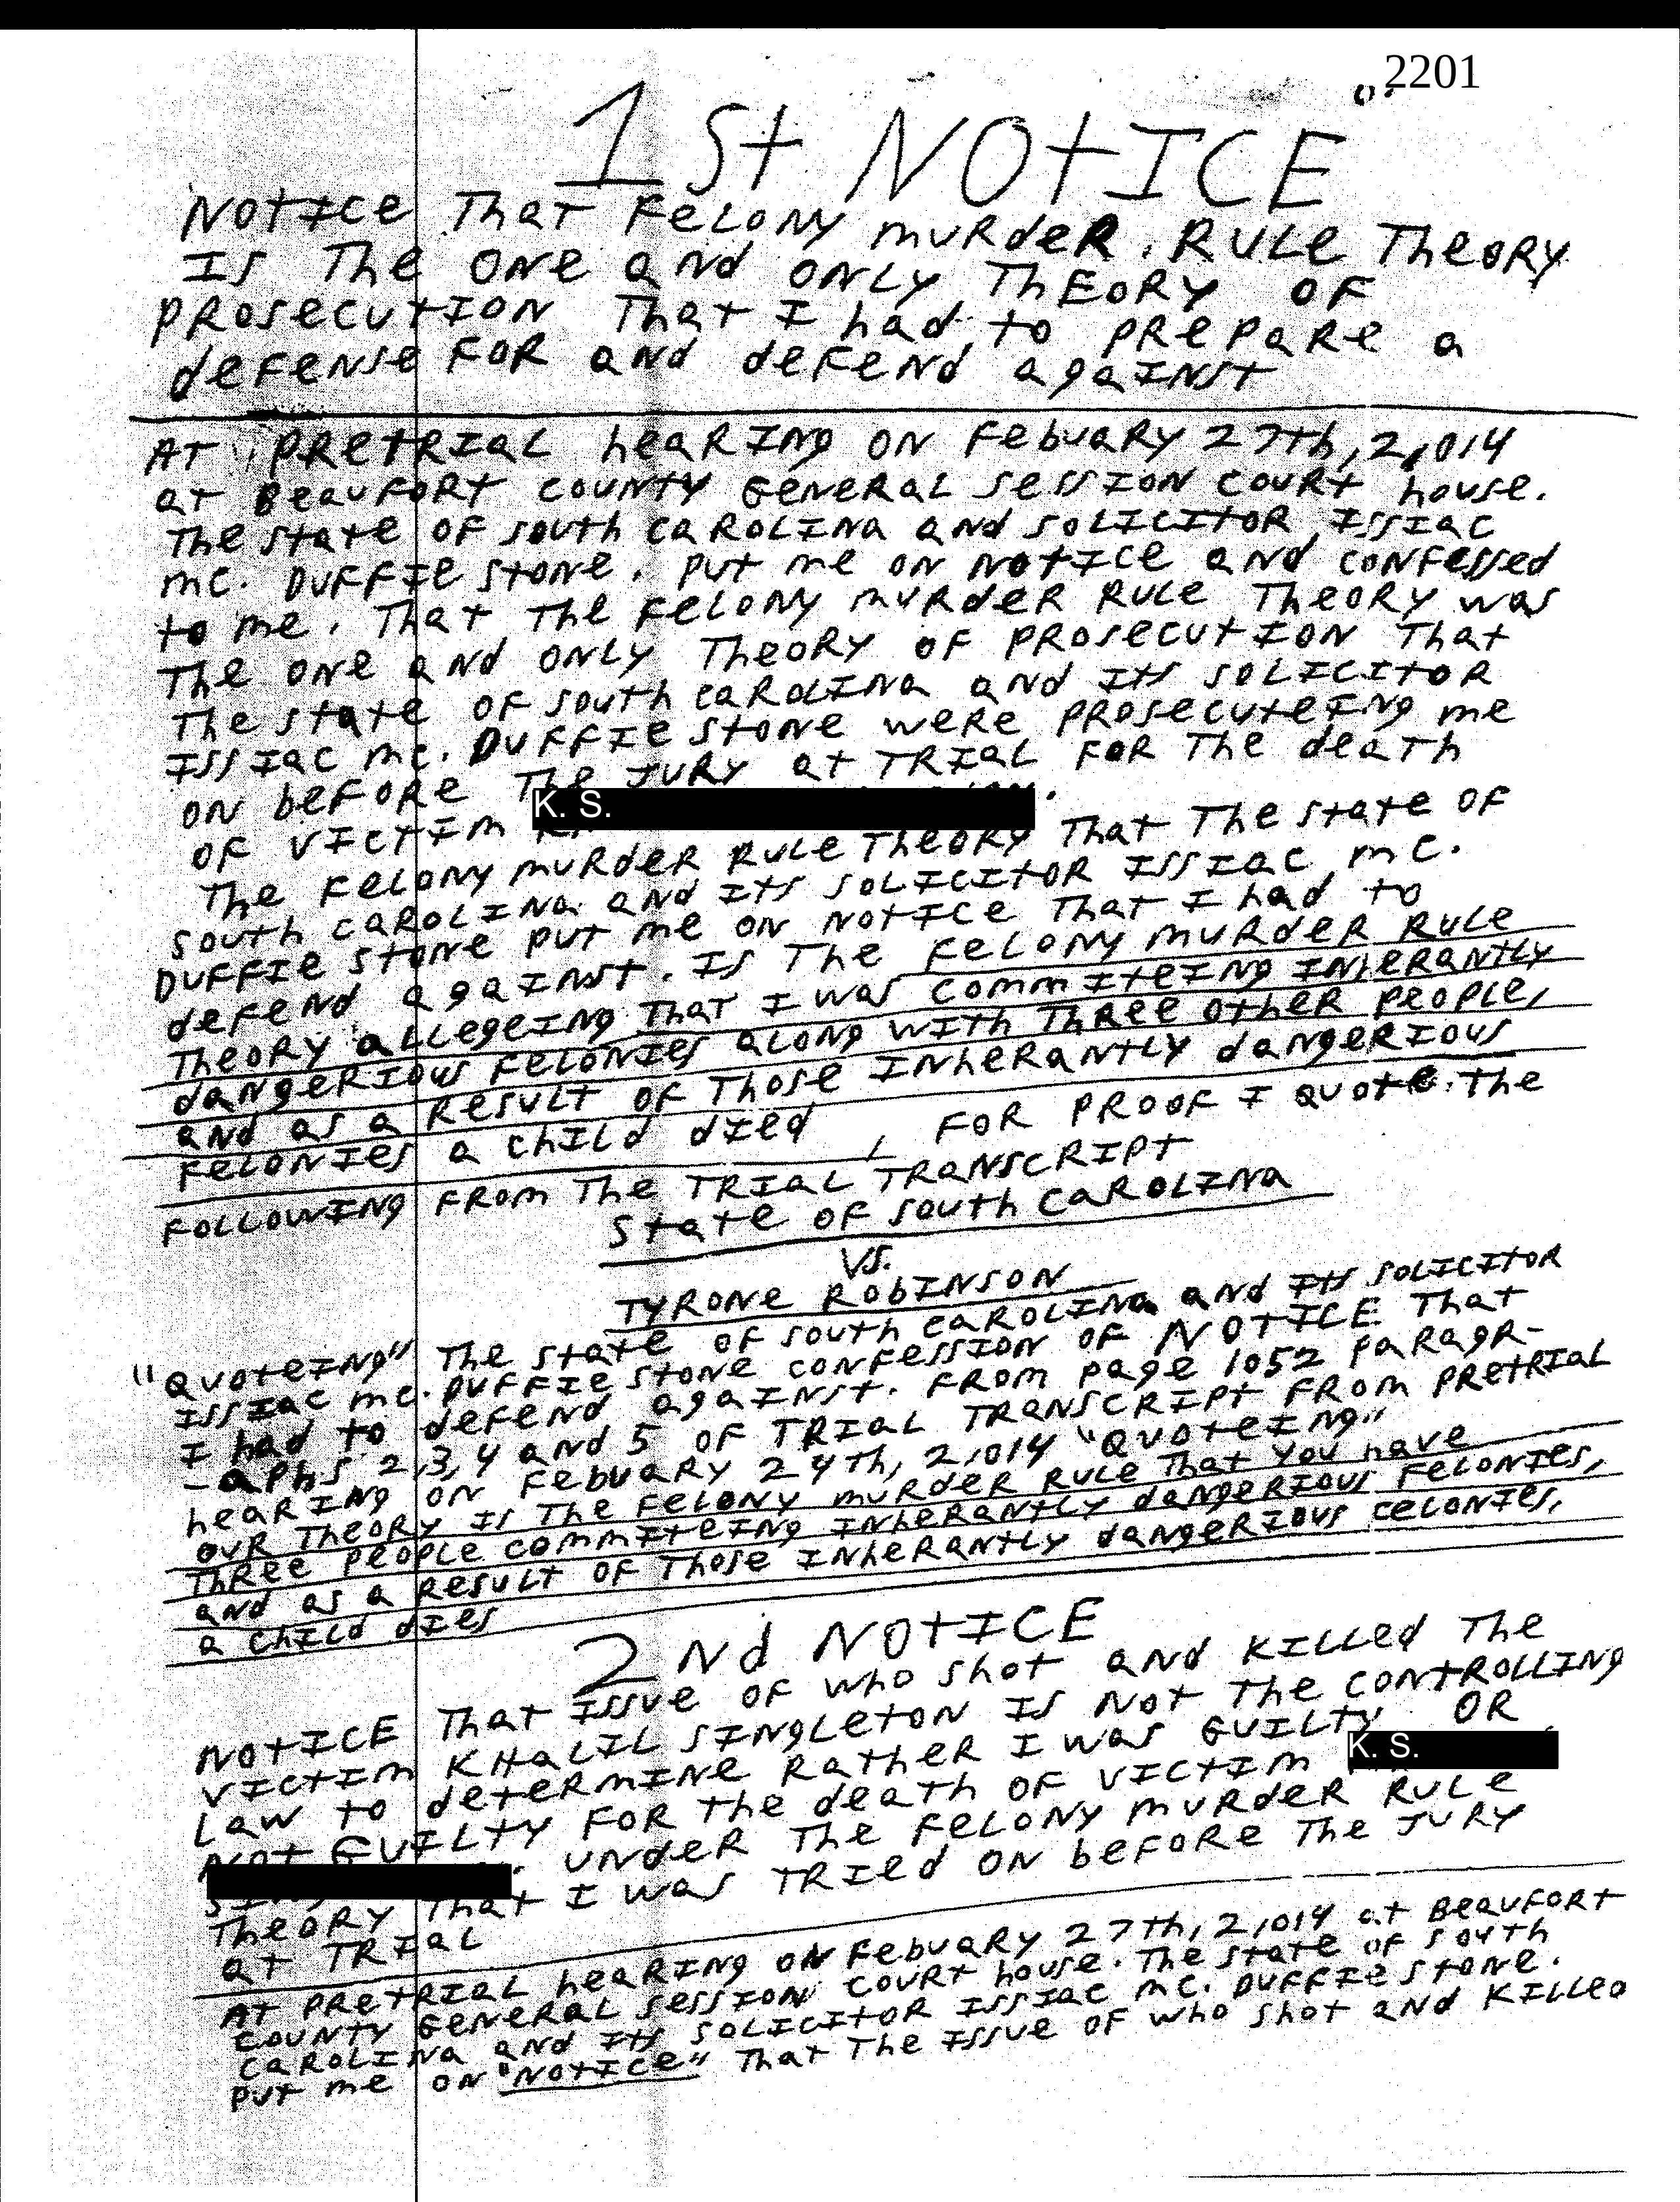 2201
1St NOtICE
NOtICe ThaT FeLONY muRdeR. RULe TheORY
IS The ONe aNd ONLY ThEORY OF
PROSecutION ThaT I had to PRePaRe a
deFeNSe FOR aNd deFeNd agaINSt
AT PRetRIaL heaRINg ON FebuaRY 27th, 2,014
at BeauFORt COUNtY GeNeRaL SeSSION COURt house.
The State OF South CaROLINa aNd SOLICItOR ISSIaC
mc. DuFFIe StoNe. Put me ON NOtICe aNd CONFeSSed
to me. That The FeLONY muRdeR RULe TheORY was
The ONe aNd ONLY TheORY OF PROSecutION That
The State OF South CaROLINa aNd ItS SOLICItOR
ISSIaC mc. DuFFIe StoNe weRe PROSecuteINg me
ON beFORe The JuRY at TRIaL FOR The death
OF VICtIm K. S.
The FeLONY muRdeR RULe TheORY That The State OF
South CaROLINa aNd ItS SOLICItOR ISSIaC mc.
DuFFIe StoNe Put me ON NOtICe That I had to
deFeNd agaINSt. IS The FeLONY muRdeR RULe
TheORY aLLegeINg That I was commIteINg INheRaNtLY
daNgeRIOuS FeLONIeS aLONg wIth ThRee OtheR PeOPLe,
aNd aS a ReSuLt OF ThoSe INheRaNtLY daNgeRIOuS
FeLONIeS a ChILd dIed, FOR PROOF I QuOte. The
FOLLOwINg FROm The TRIaL TRaNSCRIPt
State OF South CaROLINa
VS.
TYRONe RObINSON
"QuOteINg" The State OF South CaROLINa aNd ItS SOLICItOR
ISSIaC mc. DuFFIe StoNe CONFeSSION OF NOtICE That
I had to deFeNd agaINSt. FROm Page 1052 PaRagR-
-aPhS 2,3,4 and 5 OF TRIaL TRaNSCRIPt FROm PRetRIaL
heaRINg ON FebuaRY 24th, 2,014 "QuOteINg"
OuR TheORY IS The FeLONY muRdeR RULe That You have
ThRee PeOPLe commIteINg INheRaNtLY daNgeRIOuS FeLONIeS,
aNd aS a ReSuLt OF ThoSe INheRaNtLY daNgeRIOuS CeLONIeS,
a ChILd dIeS
2Nd NOtICE
NOtICE That ISSue OF who Shot aNd KILLed The
VICtIm KHaLIL SINgLetON IS NOt The CONtROLLINg
Law to deteRmINe RatheR I was GuILtY OR
NOt GuILtY FOR The death OF VICtIm K. S.
UNdeR The FeLONY muRdeR RULe
TheORY That I was TRIed ON beFORe The JuRY
at TRIaL
At PRetRIaL heaRINg ON FebuaRY 27th, 2,014 at BeauFORt
COuNtY GeNeRaL SeSSION COuRt house. The State OF South
CaROLINa aNd ItS SOLICItOR ISSIaC mc. DuFFIe StoNe.
Put me ON "NOtICe" That The ISSue OF who Shot aNd KILLed